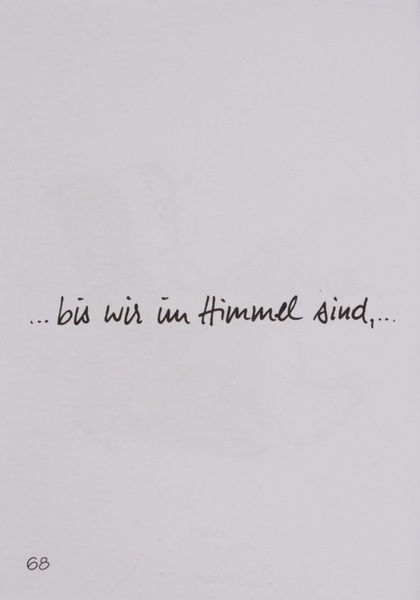 ... bis wir im Himmel sind,...
68